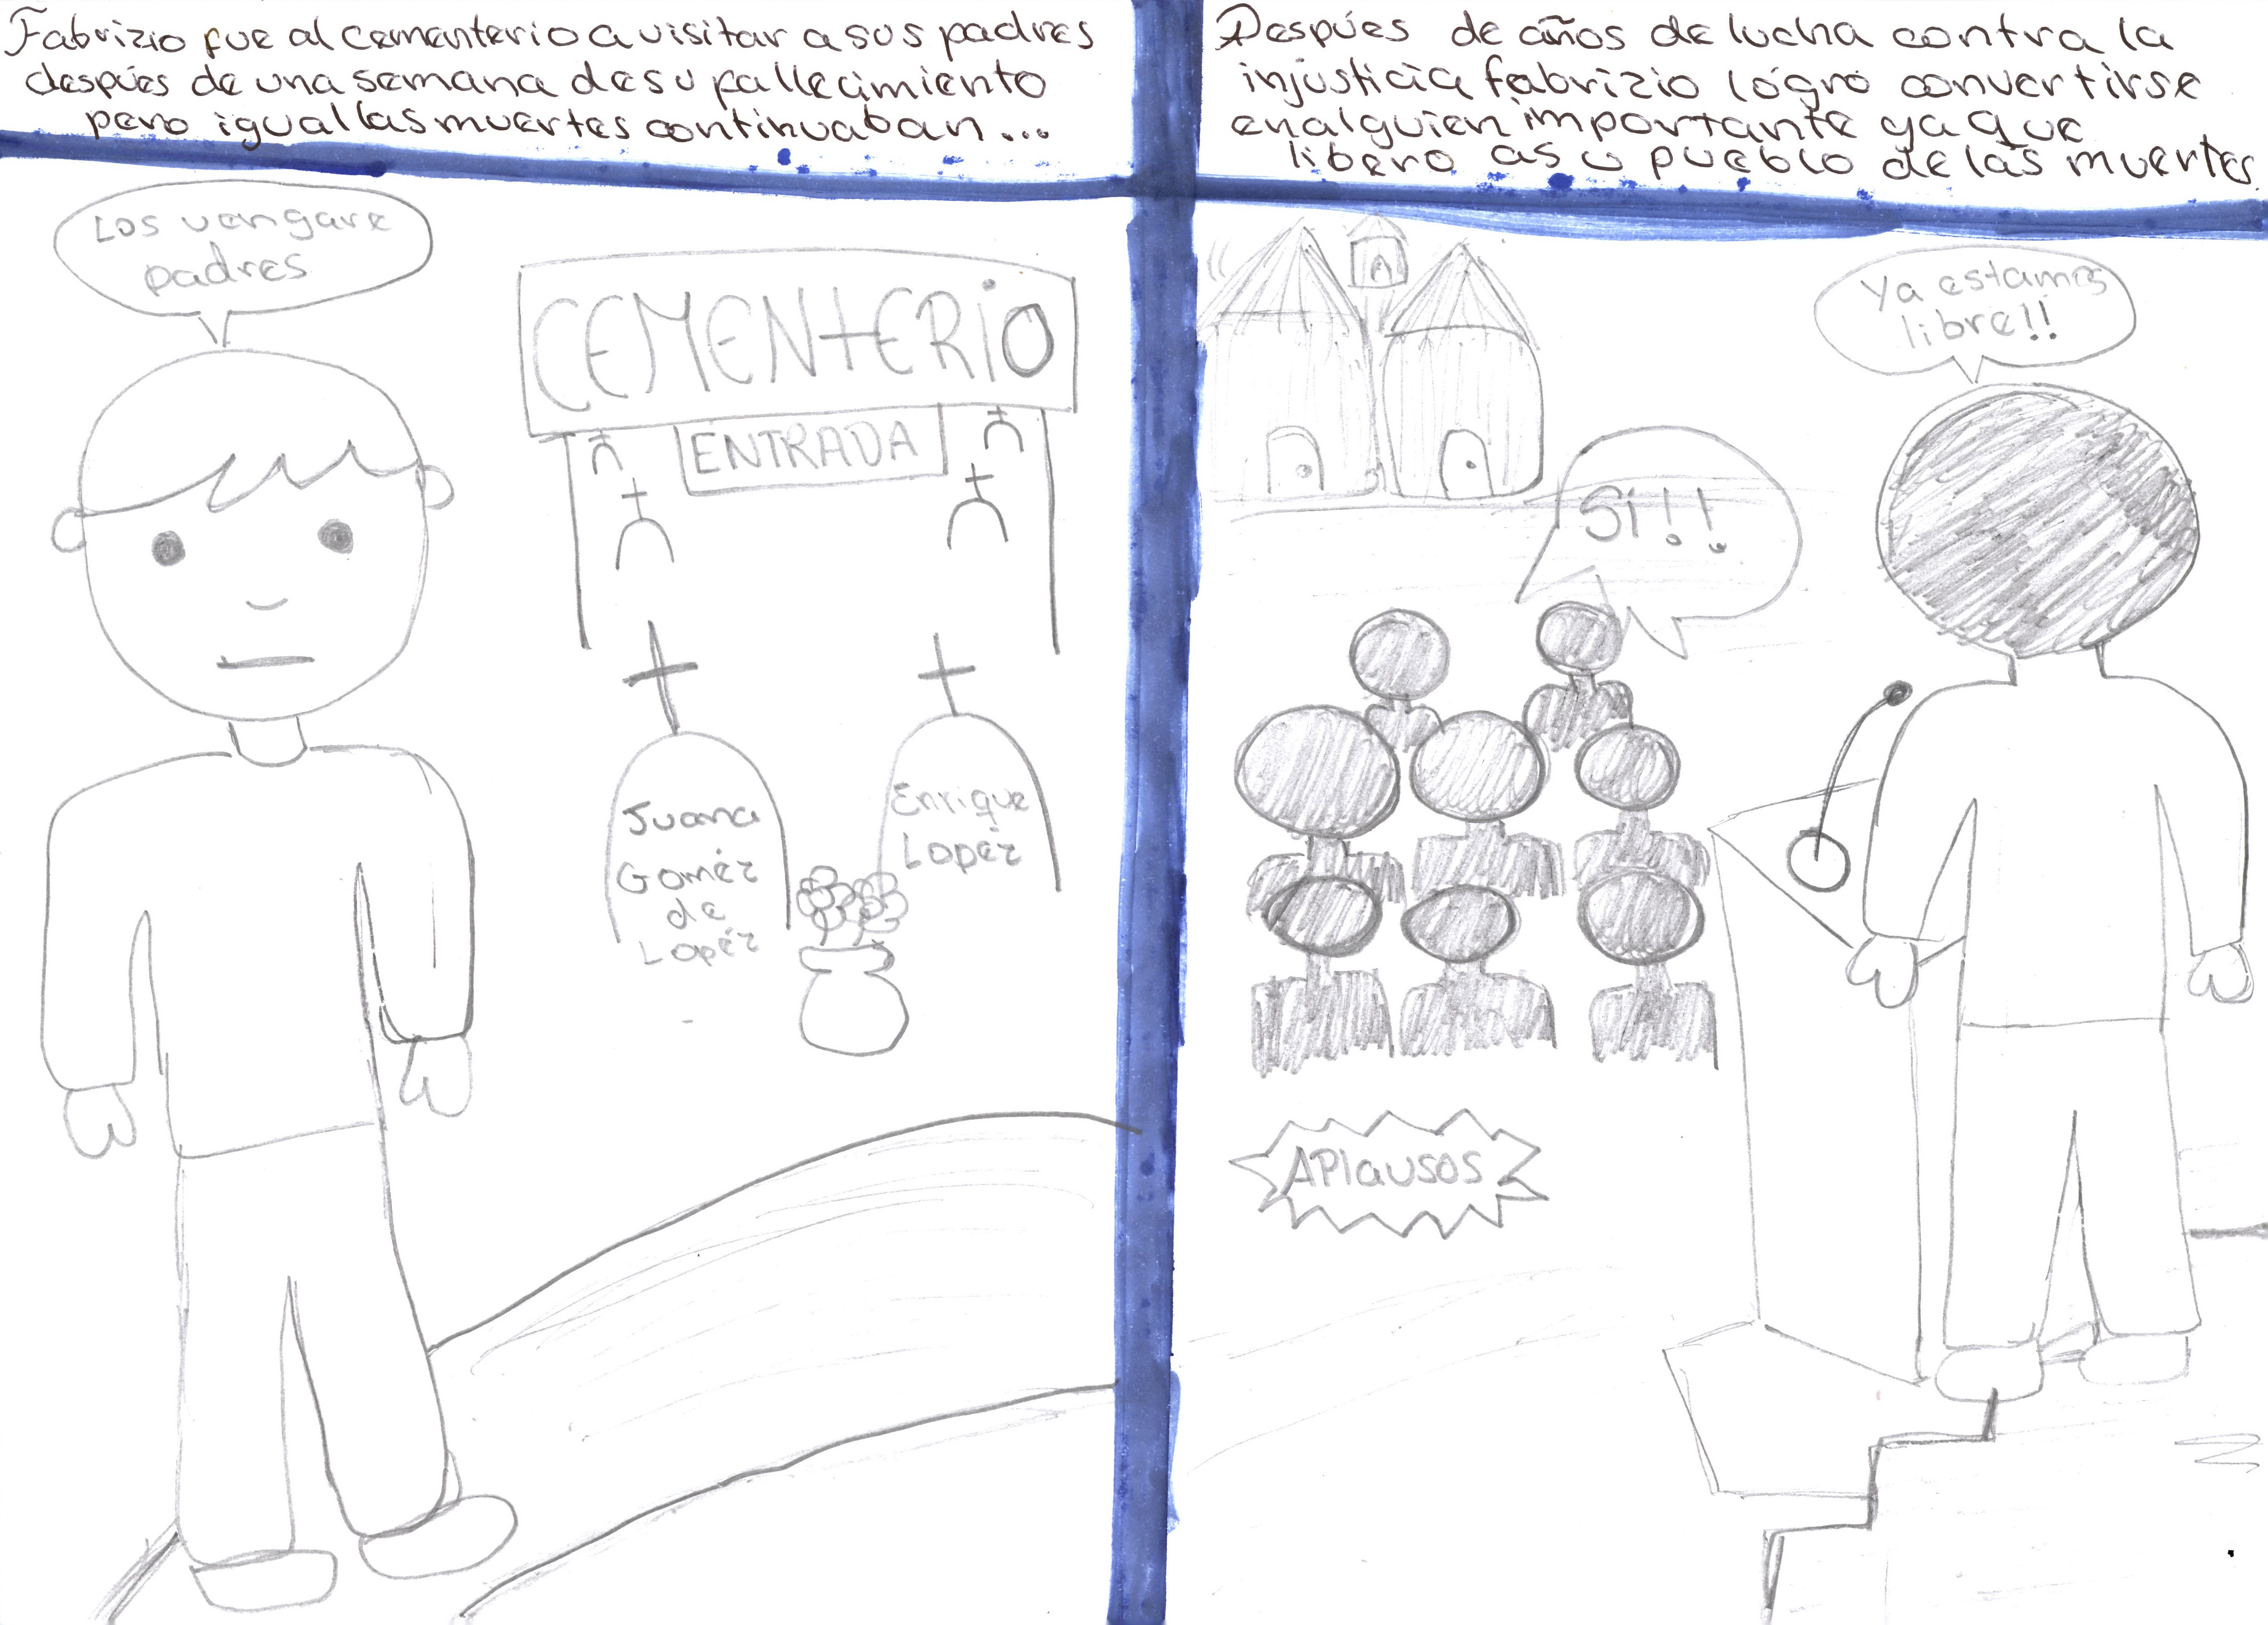 Fabrizio fue al cementerio a visitar a sus padres
despúes de una semana de su fallecimiento
pero igual las muertes continuaban...
Los vengare
padres
CEMENTERIO
ENTRADA
Juana
Goméz
de
Lopéz
Enrique
Lopéz
Despúes de años de lucha contra la
injusticia fabrizio lógro convertirse
en alguien importante ya que
libero a su pueblo de las muertes.
Ya estamos
libre!!
Si!!
APlausos